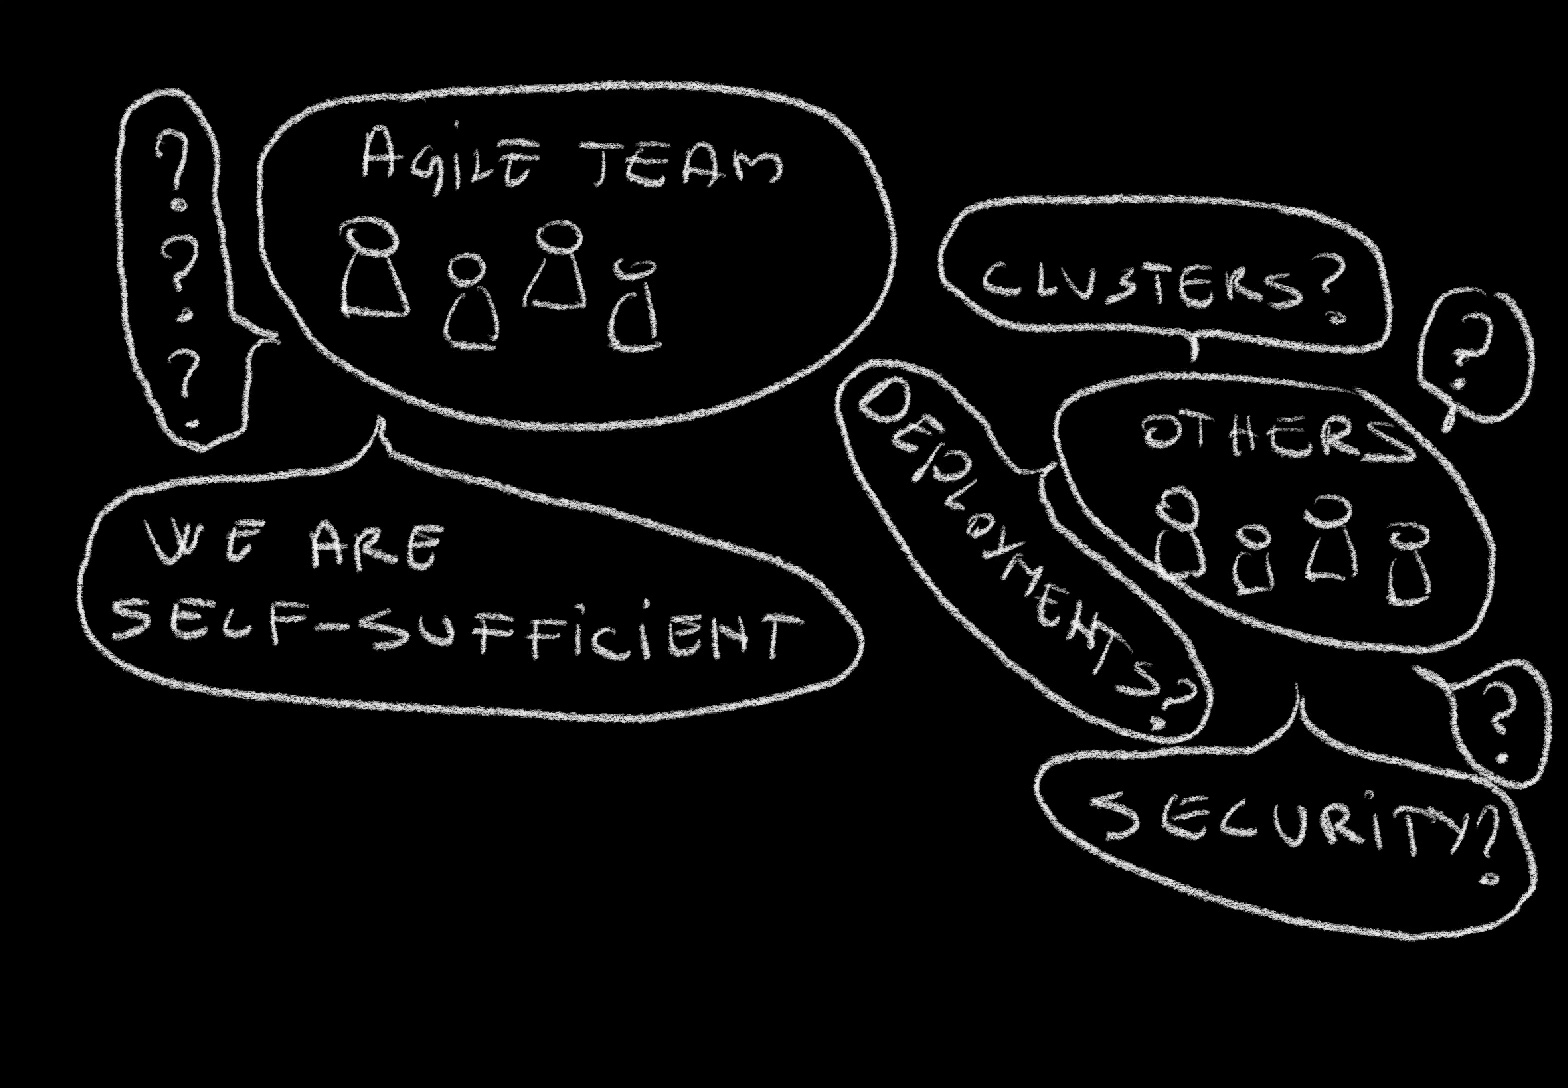 ?
?
?
AGiLE TEAM
WE ARE
SELF-SUFFiCiENT
CLUSTERS?
?
OTHERS
DEPLOYMENTS?
?
SECURiTY?